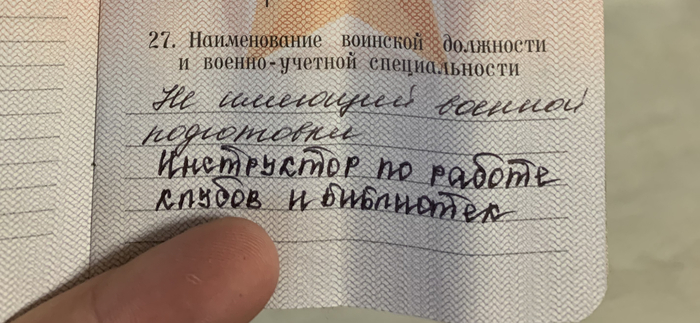 27. Наименование воинской должности
и военно-учетной специальности
Не имеющий военной
подготовки
Инструктор по работе
клубов и библиотек